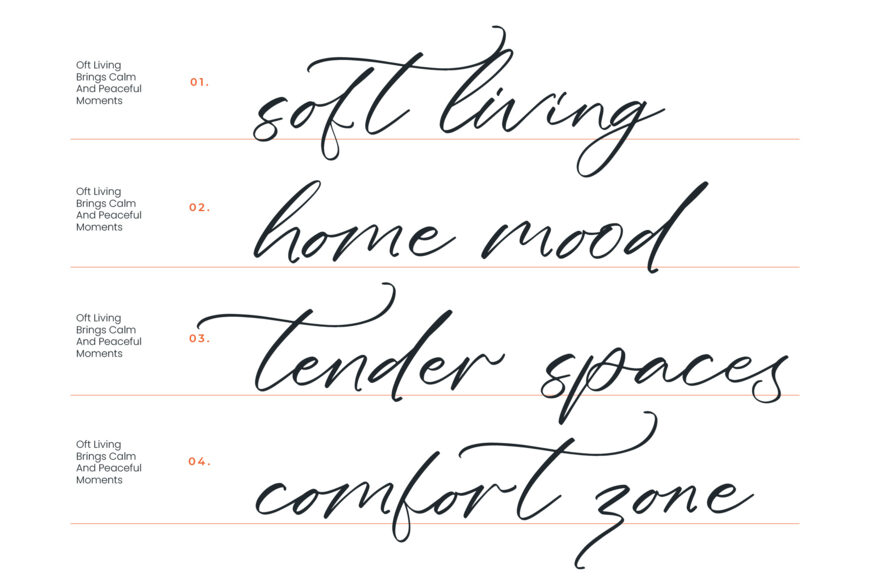 Oft Living
Brings Calm
And Peaceful
Moments
01.
soft living
Oft Living
Brings Calm
And Peaceful
Moments
02.
home mood
Oft Living
Brings Calm
And Peaceful
Moments
03.
tender spaces
Oft Living
Brings Calm
And Peaceful
Moments
04.
comfort zone